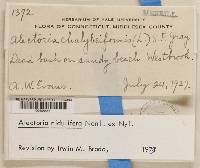 1392
HERBARIUM OF YALE UNIVERSITY
FLORA OF CONNECTICUT, MIDDLESEX COUNTY
Alectoria chalybeiformis (L.) S. F. Gray
Dead bush on sandy beach Westbrook.
A. W. Evans. July 24, 1927.
Alectoria nidulifera Norrl. ex Nyl.
Revision by Irwin M. Brodo,